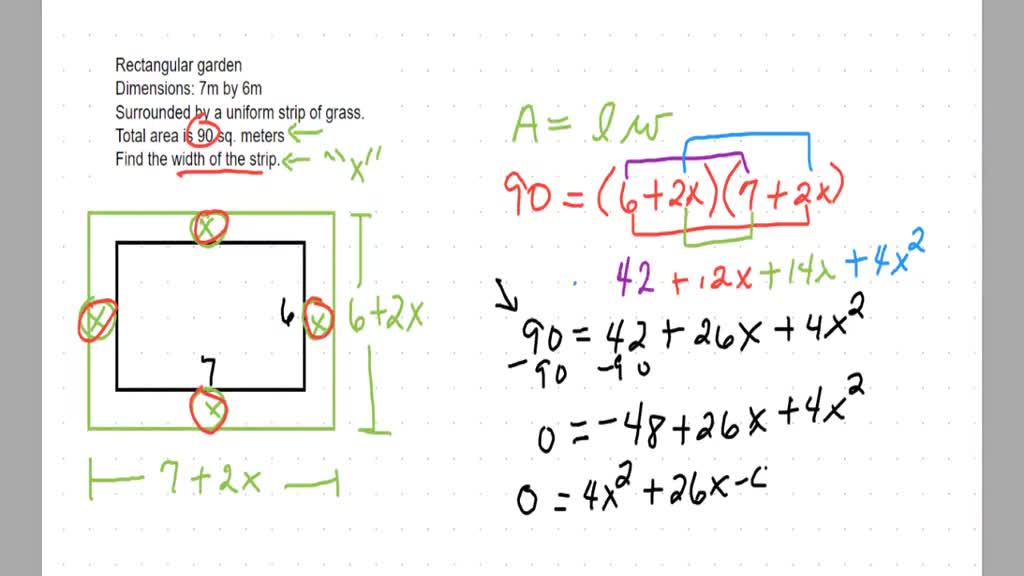 Rectangular garden
Dimensions: 7m by 6m
Surrounded by a uniform strip of grass.
Total area is 90 sq. meters
Find the width of the strip. "x"
A = lw
90 = (6+2x)(7+2x)
42 +12x +14x +4x²
90 = 42 + 26x + 4x²
-90 -90
0 = -48 + 26x + 4x²
0 = 4x² + 26x -
x
x
6
x
6+2x
7
x
7+2x